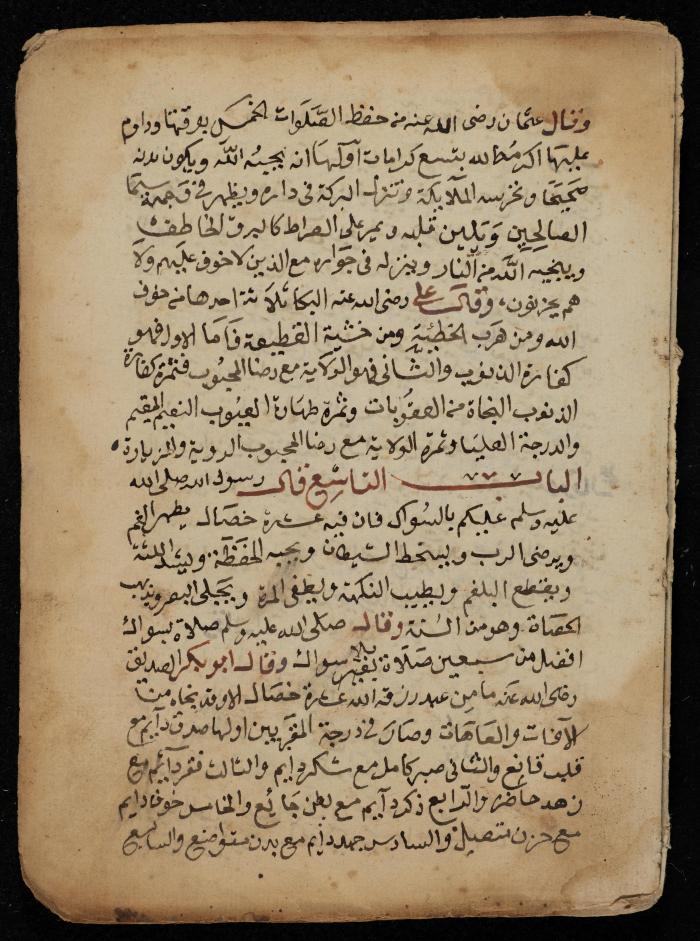 وقال عثمان رضى الله عنه من حفظ الصلوات الخمس بوقتها وداوم
عليها اكرمه الله بتسع كرامات اولها انه يحبه الله ويكون بدنه
صحيحا وتحرسه الملائكة وتنزل البركة فى داره ويظهر فى وجهه سيما
الصالحين ويلين قلبه ويمر على الصراط كالبرق الخاطف
وينجيه الله من النار وينزله فى جواره مع الذين لا خوف عليهم ولا
هم يحزنون، وقال على رضى الله عنه البكا ثلاثة احدها من خوف
الله ومن هرب الخطيئة ومن خشية القطيعة فاما الاول فهو
كفارة الذنوب والثانى فهو الولاية مع رضا المحبوب فثمرة كفارة
الذنوب النجاة من العقوبات وثمرة طهارة العيوب النعيم المقيم
والدرجة العليا وثمرة الولاية مع رضا المحبوب الروية والزيارة
الباب التاسع قال رسول الله صلى الله
عليه وسلم عليكم بالسواك فان فيه عشرة خصال يطهر الفم
ويرضى الرب ويسخط الشيطان ويحبه الحفظة ويشد اللثة
ويقطع البلغم ويطيب النكهة ويطفى المرة ويجلى البصر ويذهب
الحصاة وهو من السنة وقال صلى الله عليه وسلم صلاة بسواك
افضل من سبعين صلاة بلا سواك وقال ابو بكر الصديق
رضى الله عنه ما من عبد رزقه الله عشرة خصال الا وقد نجاه من
الآفات والعاهات وصار فى درجة المقربين اولها صدق دآيم مع
قلب قانع والثانى صبر كامل مع شكر دايم والثالث فقر دآئم مع
زهد حاضر والرابع ذكر دآيم مع بطن جايع والخامس خوف دايم
مع حزن متصل والسادس جهد دايم مع بدن متواضع والسابع